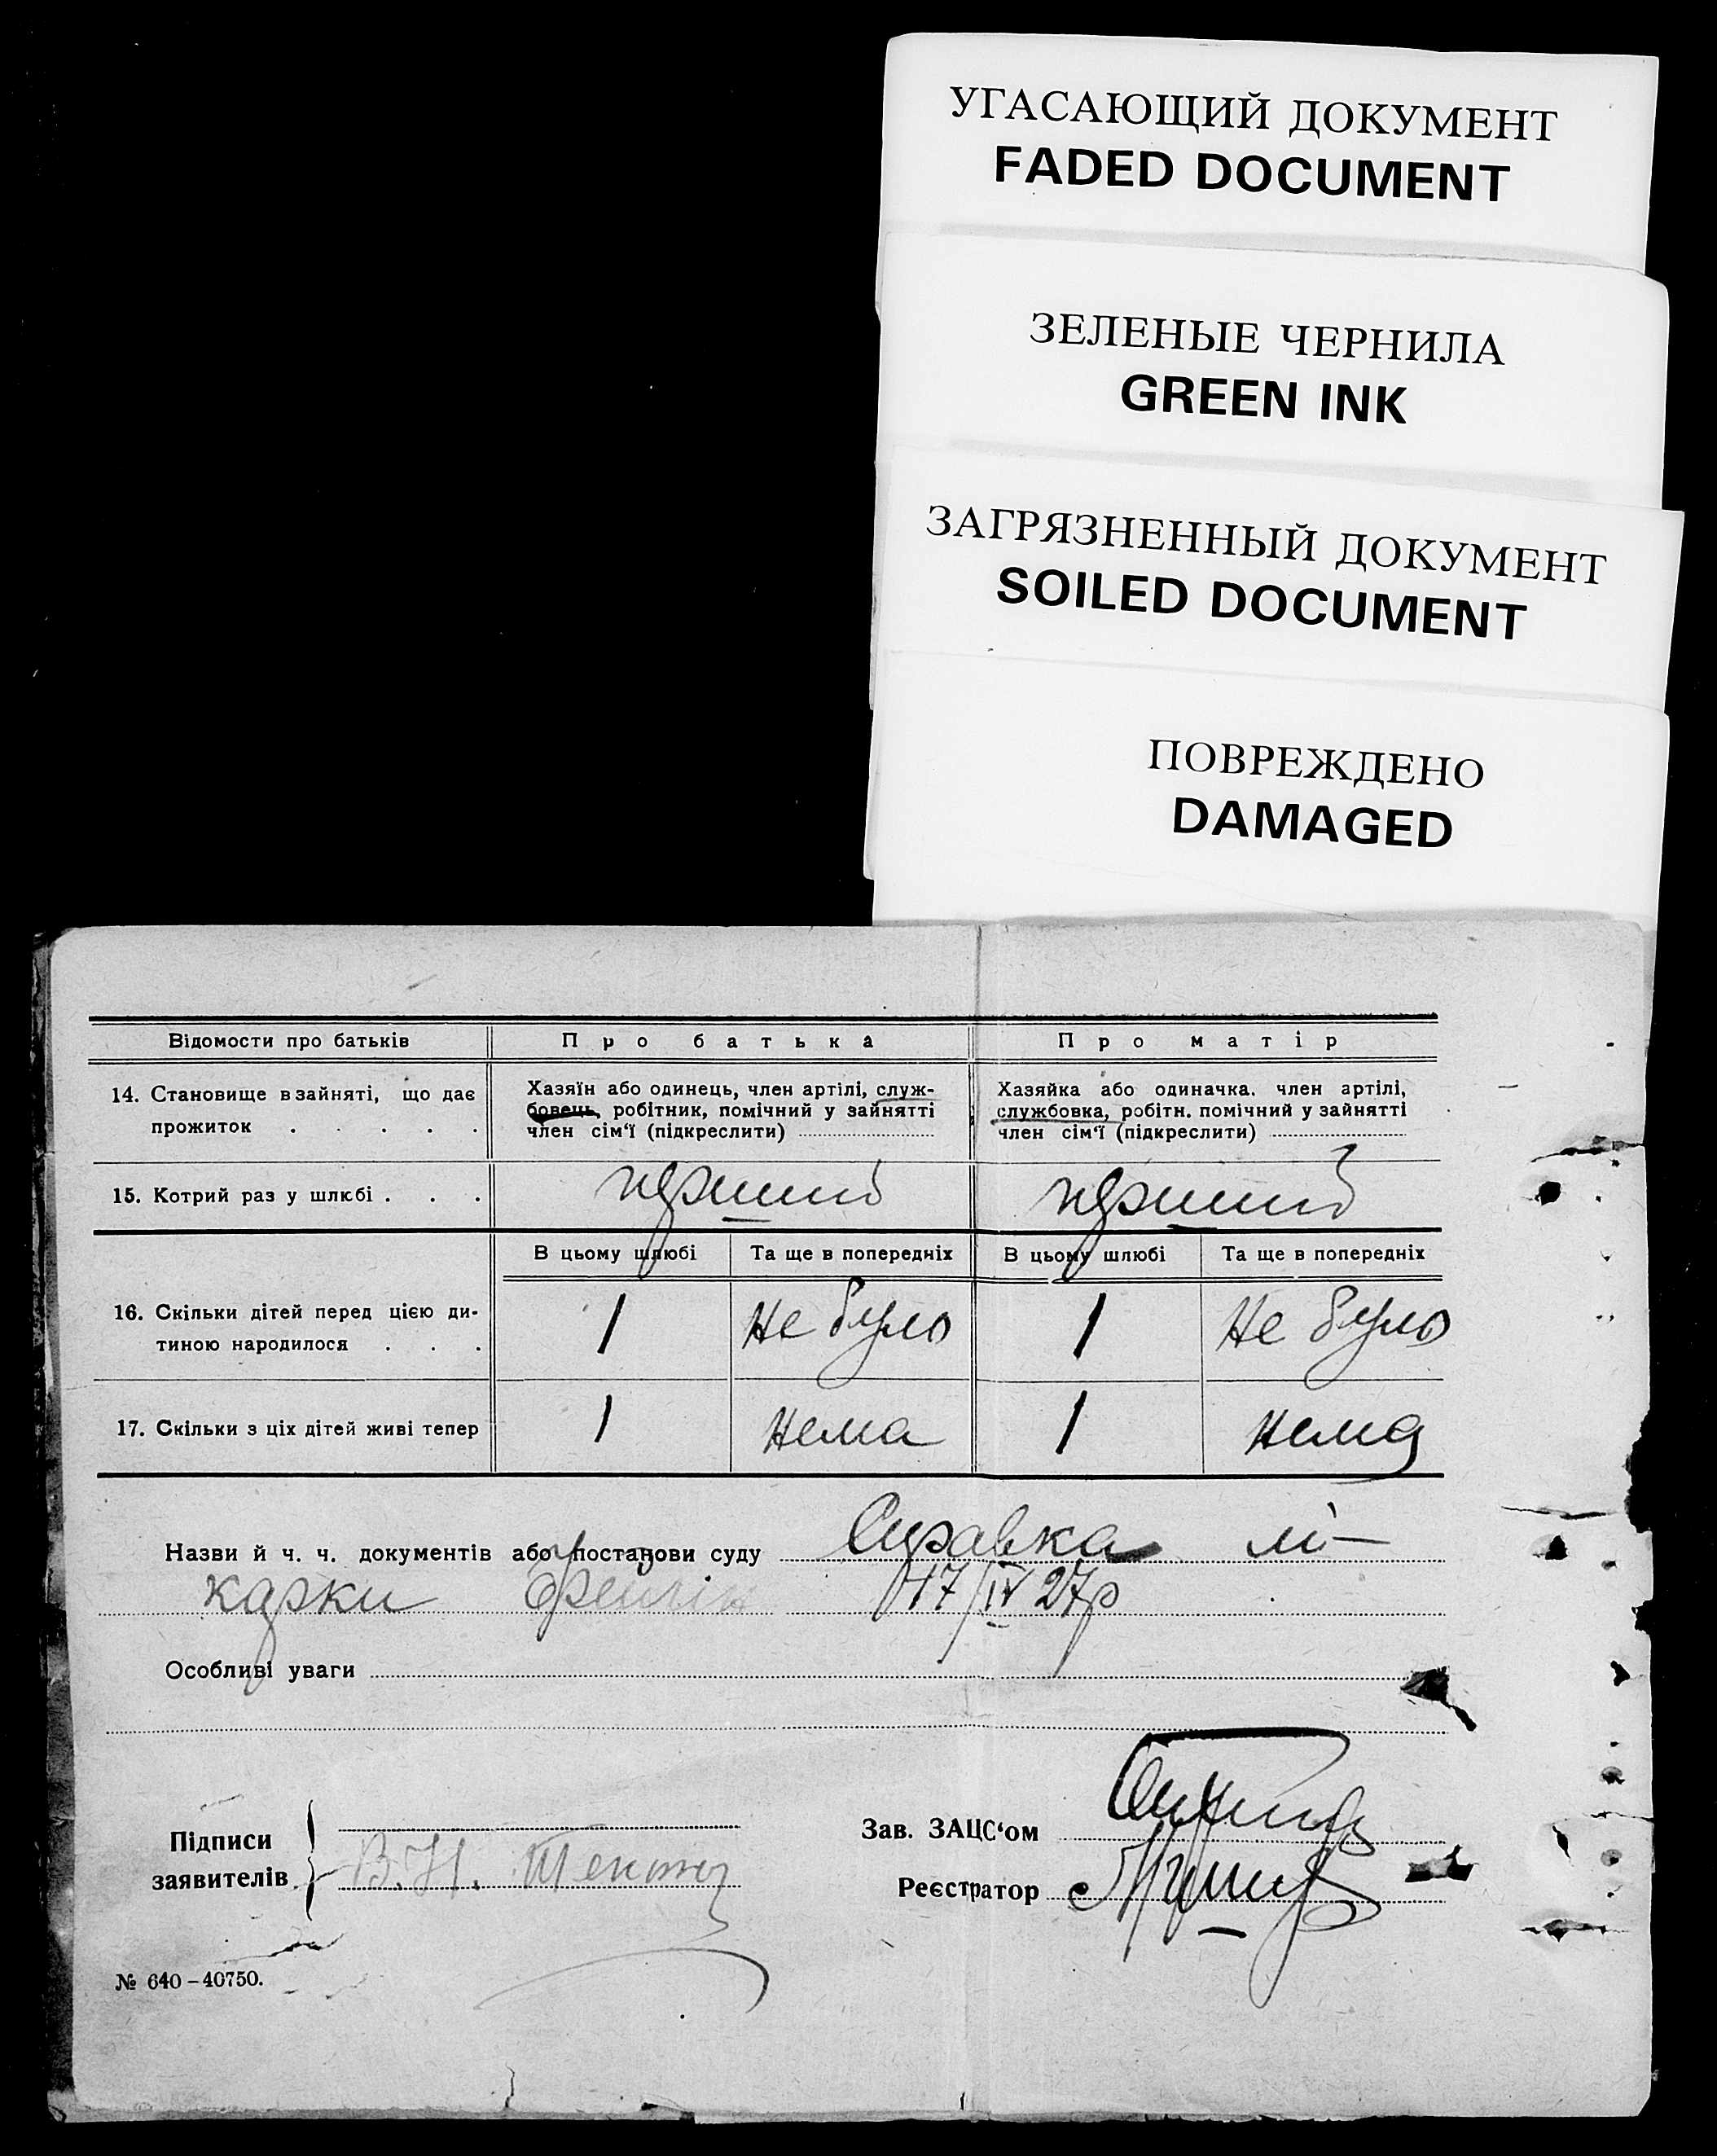 УГАСАЮЩИЙ ДОКУМЕНТ
FADED DOCUMENT
ЗЕЛЕНЫЕ ЧЕРНИЛА
GREEN INK
ЗАГРЯЗНЕННЫЙ ДОКУМЕНТ
SOILED DOCUMENT
ПОВРЕЖДЕНО
DAMAGED
Відомости про батьків Про батька Про матір
14. Становище в зайняті, що дає
прожиток . . . . .
Хазяїн або одинець, член артілі, служ-
бовець, робітник, помічний у зайнятті
член сім'ї (підкреслити)
Хазяйка або одиначка. член артілі,
службовка, робітн. помічний у зайнятті
член сім'ї (підкреслити)
15. Котрий раз у шлюбі . . . перший перший
В цьому шлюбі Та ще в попередніх В цьому шлюбі Та ще в попередніх
16. Скільки дітей перед цією ди-
тиною народилося . . . 1 Не було 1 Не було
17. Скільки з ціх дітей живі тепер 1 нема 1 нема
Назви й ч. ч. документів або постанови суду Справка лі-
карки 17/IV 27р
Особливі уваги
Підписи
заявителів В.Н.
Зав. ЗАЦС'ом
Реєстратор
№ 640–40750.